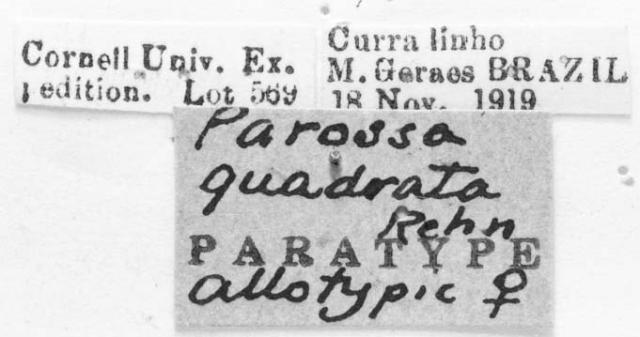 Cornell Univ. Ex.
pedition. Lot 569
Curralinho
M. Geraes BRAZIL
18 Nov. 1919
Parossa
quadrata
Rehn
PARATYPE
allotypic ♀